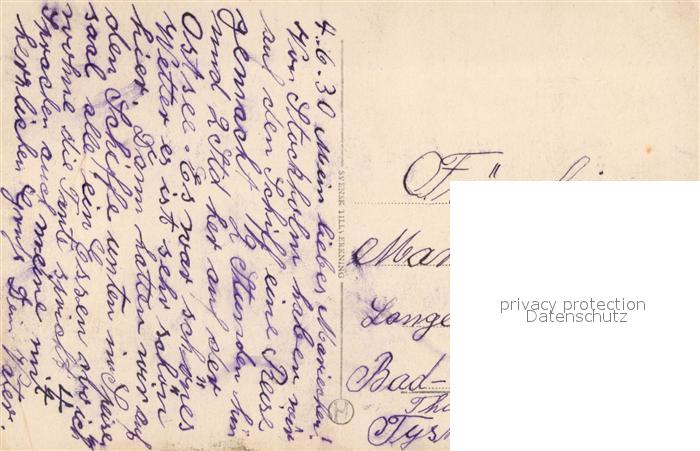 4.6.30 Mein liebes
Von Stockholm haben wir
auf dem Schiff eine Reise
gemacht 1½ Stunden hin
und 2 Std her auf der
Ostsee. Es war schönes
Wetter es ist sehr schön
hier. Dann hatten wir auf
den Schiffe unten im Speise
saal alle ein Essen
wohne die Tante spricht
auch meine mit
herzlichen Gruß Dein Vater.
SVENSK TILLVERKNING
H
Lange
Bad-
privacy protection
Datenschutz